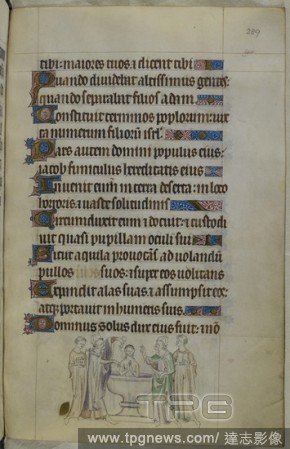 tibi: maiores tuos, & dicent tibi
Quando dividebat altissimus gentes:
quando separabat filios adam.
Constituit terminos poplorum: iux
ta numerum filiorum isrl.
Pars autem domini populus eius:
iacob funiculus hereditatis eius
Invenit eum in terra deserta: in loco
horroris, & vaste solitudinis
Circumduxit eum & docuit: & custodi
vit quasi pupillam oculi sui
Sicut aquila provocans ad volandum
pullos suos: & super eos volitans
Expandit alas suas & assumpsit eum:
atque portavit in humeris suis.
Dominus solus dux eius fuit: & no
TPG
www.tpgnews.com/達志影像